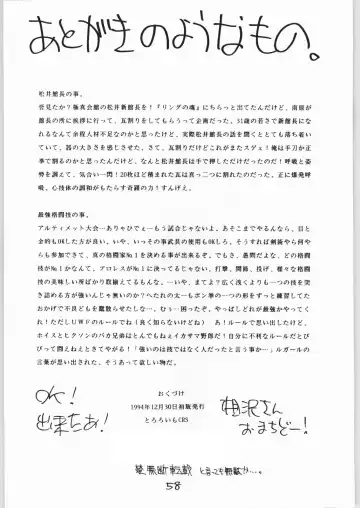 あとがきのようなもの。
松井館長の事。
皆見たか？極真会館の松井新館長を！『リングの魂』にちらっと出てたんだけど、南原が
館長の所に挨拶に行って、瓦割りをしてもらうって企画だった。31歳の若さで新館長にな
れるなんて余程人材不足なのかと思ったけど、実際松井館長の話を聞くととても落ち着い
ていて、器の大きさを感じさせた。さて、瓦割りだけどこれがまたスゲェ！俺は手刀か正
拳で割るのかと思ったんだけど、なんと松井館長は手で押しただけだったのだ！呼吸と姿
勢を調えて、気合い一閃！20枚ほど積まれた瓦は真っ二つに割れたのだった。正に爆発呼
吸、心技体の調和がもたらす奇蹟の力！すんげえ。
最強格闘技の事。
アルティメット大会…ありゃひでぇ…もう試合じゃないよ。あそこまでやるんなら、目と
金的もOKした方が良い。いや、いっその事武具の使用もOKしろ、そうすれば剣術やら何や
らも参加できて、真の格闘家No1を決める事が出来るぞ。でもさ、愚問だよな、どの格闘
技がNo1かなんて、プロレスがNo1に決ってるじゃない、打撃、関節、投げ、様々な格闘
技の美味しい所ばかり取揃えてるもんな。…いや、まてよ？広く浅くよりも一つの技を突
き詰める方が強いんじゃ無いのか？へたれの太一もポン拳の一つの形をずっと練習してた
おかげで不良どもを鑑別させたしな…。むぅ…困ったぞ。やっぱしどれが最強かやってく
れ！ただしＵＷＦのルールでね（良く知らないけどね）　あ！ルールで思い出したけど、
ホイスとヒクソンのバカ兄弟はとんでもねぇイカサマ野郎だ！自分に不利なルールだとび
びって問えねぇときてやがる！「強いのは技ではなく人だったと言う事か…」ルガールの
言葉が思い出された、そうあって欲しい物だ。
おくづけ
1994年12月30日初版発行
とろろいもCBS
OK！
出来たぁ！
相沢さん
おまちどー！
禁無断転載
58